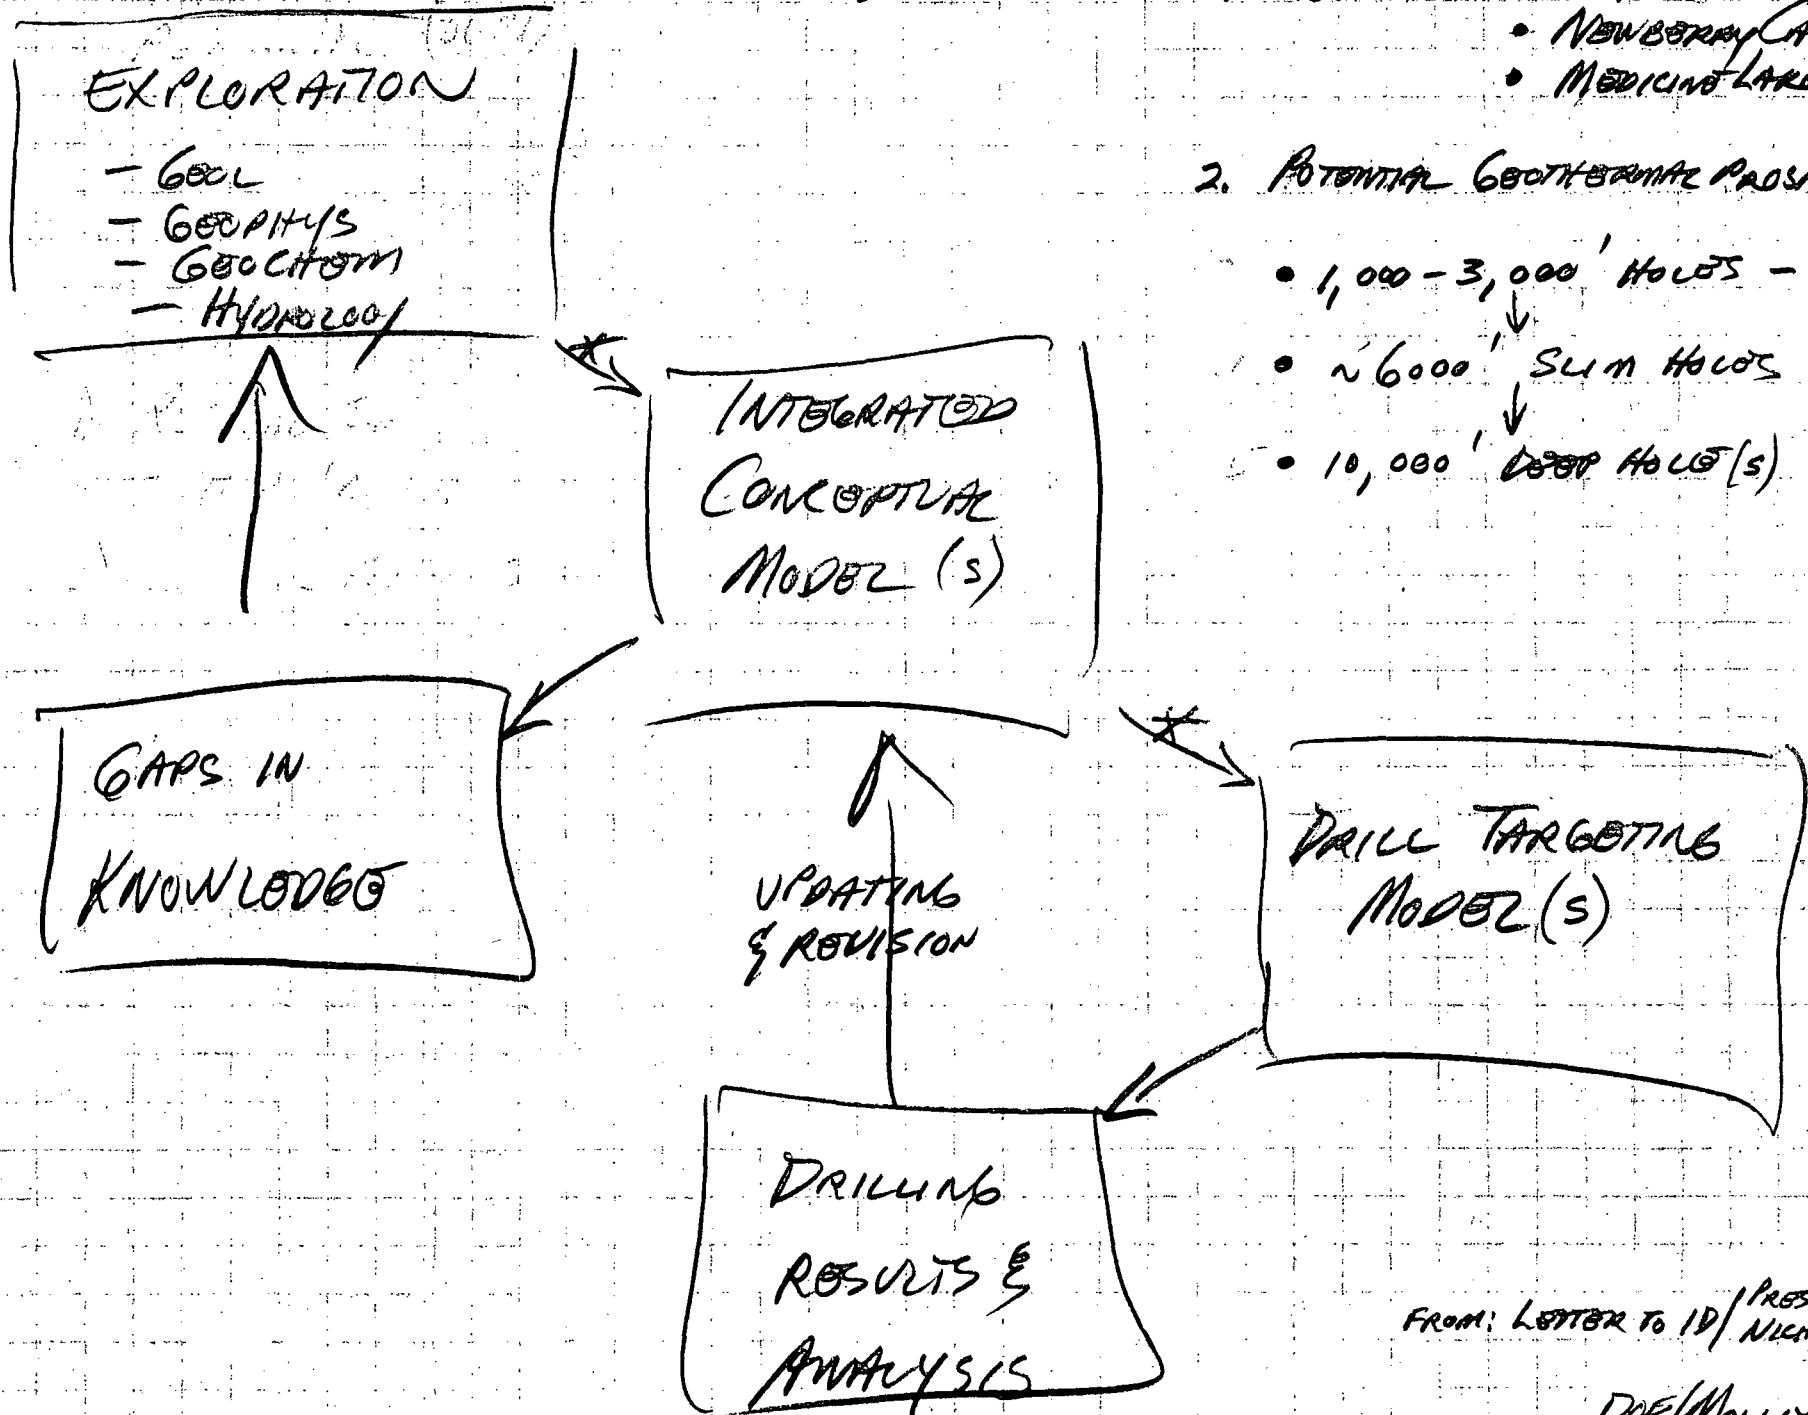 EXPLORATION
- GEOL
- GEOPHYS
- GEOCHEM
- HYDROLOGY
INTEGRATED
CONCEPTUAL
MODEL (S)
GAPS IN
KNOWLEDGE
UPDATING
& REVISION
DRILL TARGETING
MODEL (S)
DRILLING
RESULTS &
ANALYSIS
• NEWBERRY CA
• MEDICINE LAKE
2. POTENTIAL GEOTHERMAL
• 1,000 - 3,000' HOLES -
• ~ 6000' SLIM HOLES
• 10,000' DEEP HOLE (S)
FROM: LETTER TO ID/
DOE/